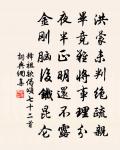 洪蒙未判絕疏親
畢竟難將事理分
夜半正明還不露
金剛腦後鐵昆侖
釋祖欽偈頌七十二首
詞典網書